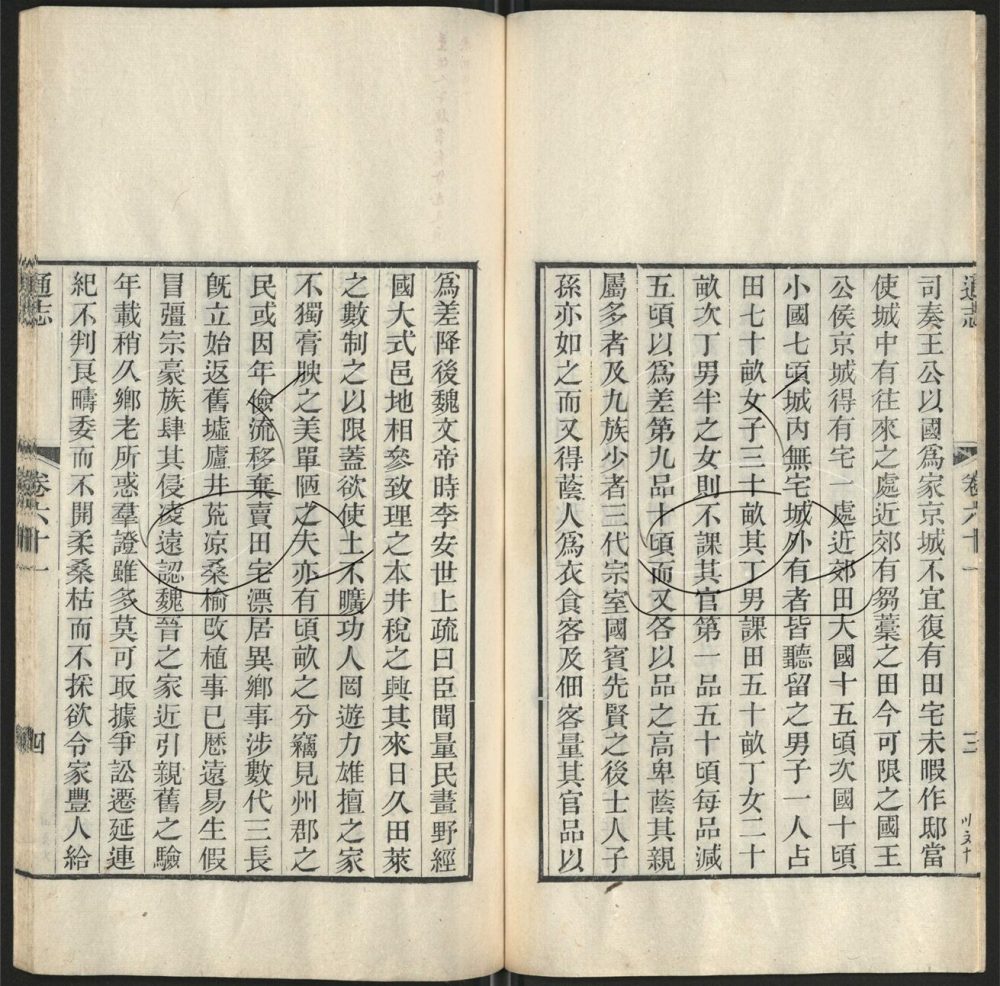 通志
卷六十一
三
司奏王公以國爲家京城不宜復有田宅未暇作邸當
使城中有往來之處近郊有芻藁之田今可限之國王
公侯京城得有宅一處近郊田大國十五頃次國十頃
小國七頃城內無宅城外有者皆聽留之男子一人占
田七十畝女子三十畝其丁男課田五十畝丁女二十
畝次丁男半之女則不課其官第一品五十頃每品減
五頃以爲差第九品十頃而又各以品之高卑蔭其親
屬多者及九族少者三代宗室國賓先賢之後士人子
孫亦如之而又得蔭人爲衣食客及佃客量其官品以
爲差降後魏文帝時李安世上疏曰臣聞量民畫野經
國大式邑地相參致理之本井稅之興其來日久田萊
之數制之以限蓋欲使土不曠功人罔遊力雄擅之家
不獨膏腴之美單陋之夫亦有頃畝之分竊見州郡之
民或因年儉流移棄賣田宅漂居異鄉事涉數代三長
旣立始返舊墟廬井荒凉桑榆改植事已歷遠易生假
冒彊宗豪族肆其侵凌遠認魏晉之家近引親舊之驗
年載稍久鄉老所惑羣證雖多莫可取據爭訟遷延連
紀不判良疇委而不開柔桑枯而不採欲令家豐人給
通志
卷六十一
四